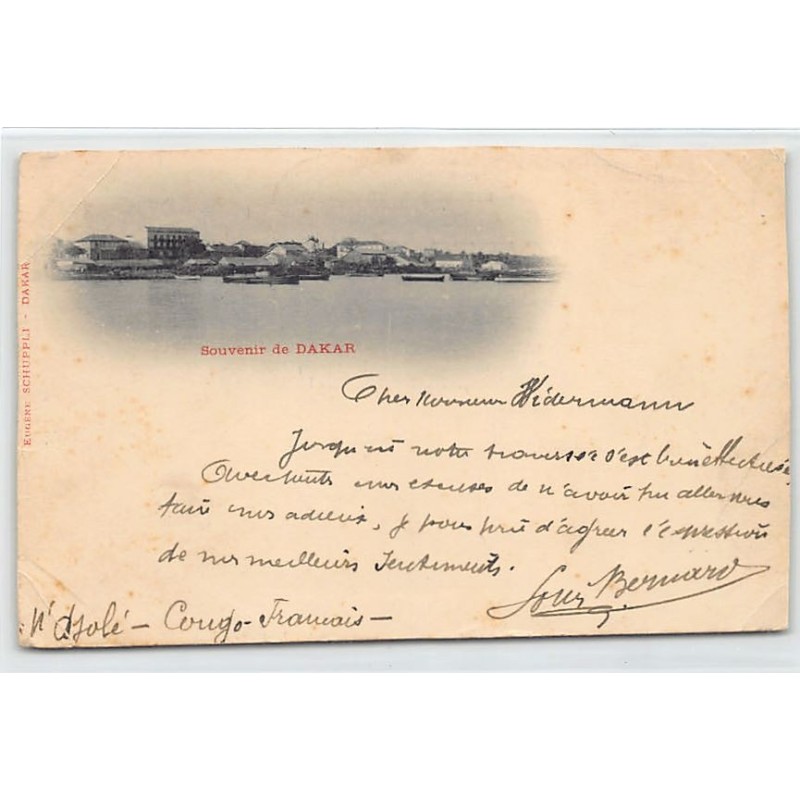 EUGÈNE SCHUPPLI - DAKAR
Souvenir de DAKAR
Cher Monsieur Hidermann
Jusqu'ici notre traversée s'est bien effectuée.
Avec toutes mes excuses de n'avoir pu aller vous
faire mes adieux, je vous prie d'agréer l'expression
de mes meilleurs sentiments.
Bernard
N'Djolé - Congo-Français -